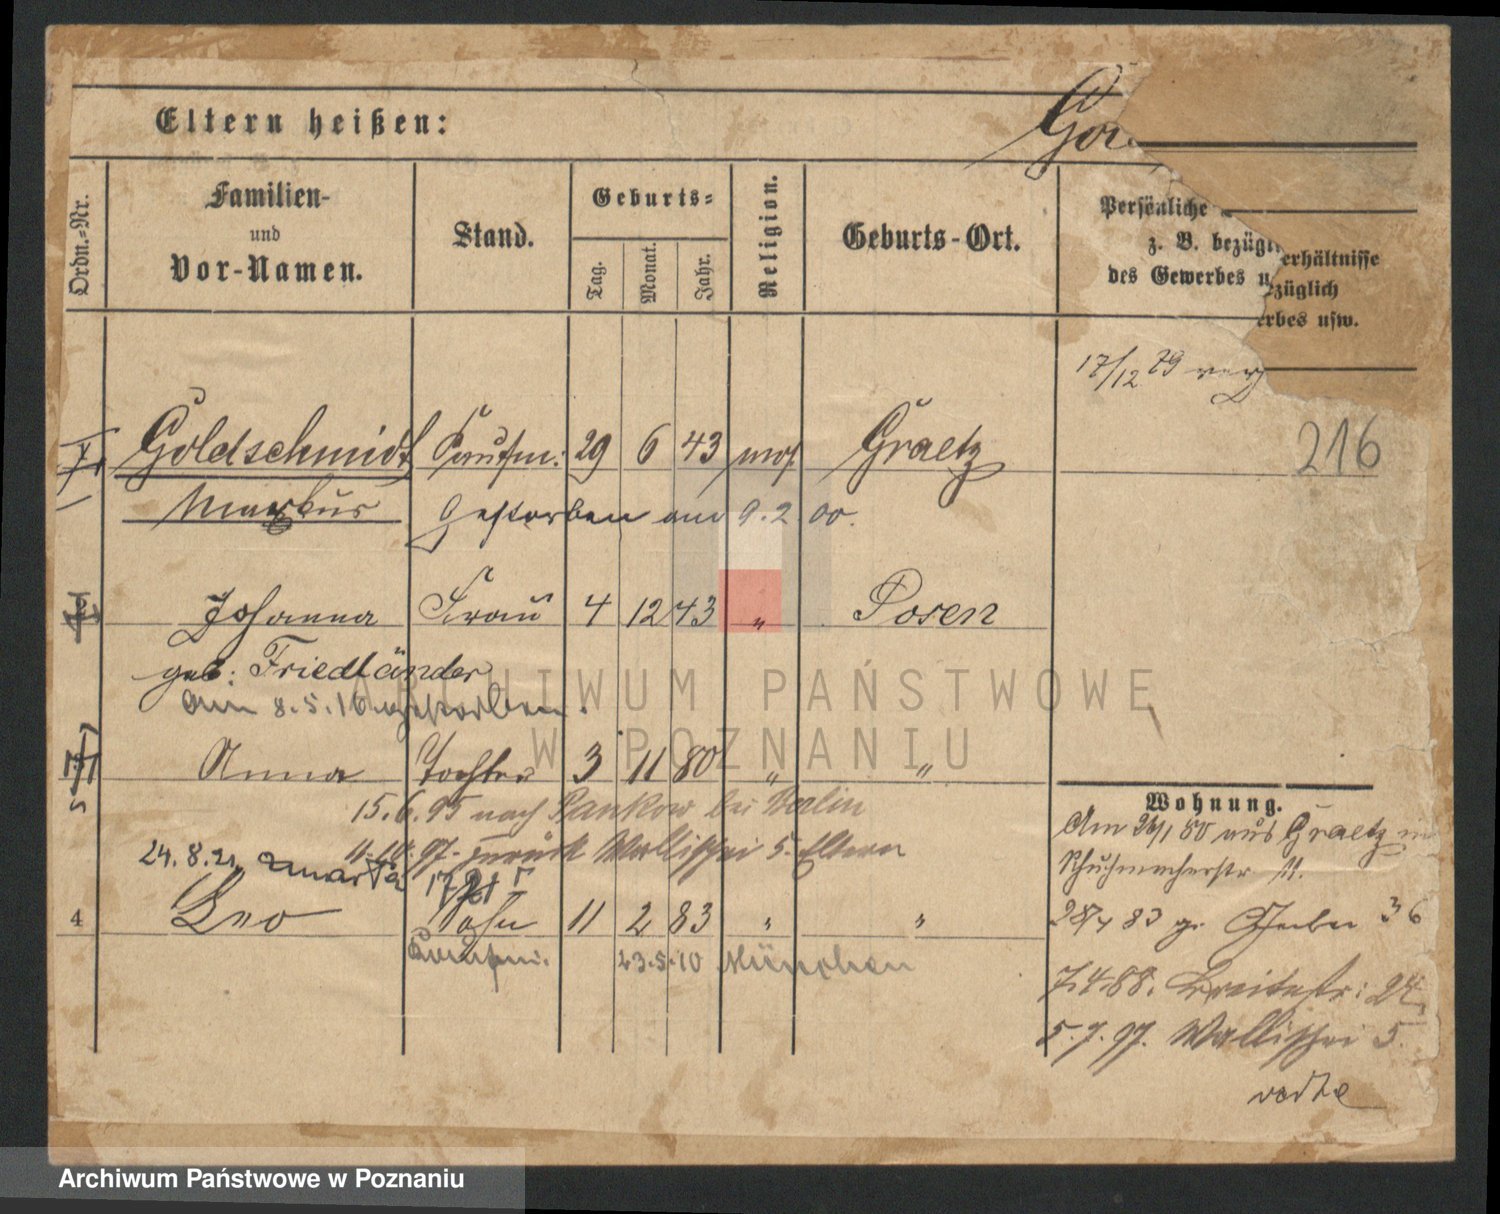 Eltern heißen:
Ordn.-Nr.
Familien-
und
Vor-Namen.
Stand.
Geburts-
Tag.
Monat.
Jahr.
Religion.
Geburts-Ort.
Persönliche
z. B. bezügl
des Gewerbes u
erhältnisse
züglich
erbes usw.
17/12 79
216
Goldschmidt Kaufm: 29 6 43 mos. Graetz
Markus Gestorben am 9.2.00.
Johanna Frau 4 12 43 " Posen
geb: Friedländer
Am 8.5.16 gestorben.
Anna Tochter 3 11 80 " "
15.6.95 nach Pankow bei Berlin
97. zurück Wallischei 5. Eltern
24.8.21 zmarła
4 Leo Sohn 11 2 83 " "
Kaufm. 23.5.10 München
Wohnung.
Am 26/1 80 aus Graetz
Schuhmacherstr 11.
28/4 83 gr. Gerber 36
7.4.88. Breitestr: 24
5.7.97. Wallischei 5.
ARCHIWUM PAŃSTWOWE
W POZNANIU
Archiwum Państwowe w Poznaniu